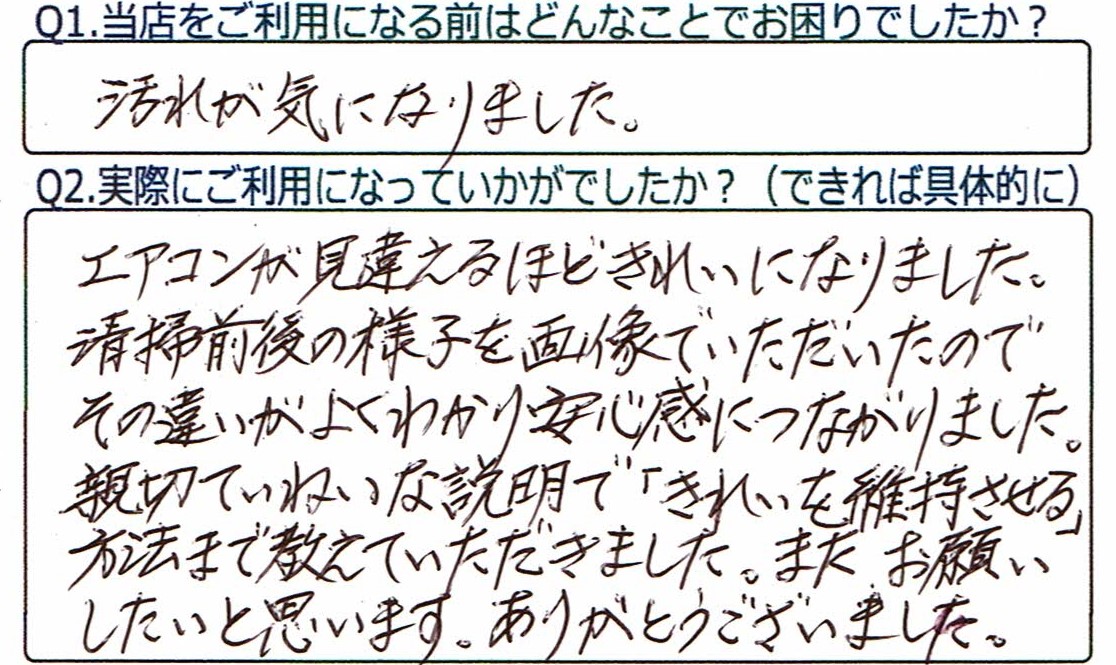 Q1.当店をご利用になる前はどんなことでお困りでしたか？
汚れが気になりました。
Q2.実際にご利用になっていかがでしたか？（できれば具体的に）
エアコンが見違えるほどきれいになりました。
清掃前後の様子を画像でいただいたので
その違いがよくわかり安心感につながりました。
親切ていねいな説明で「きれいを維持させる」
方法まで教えていただきました。また お願い
したいと思います。ありがとうございました。